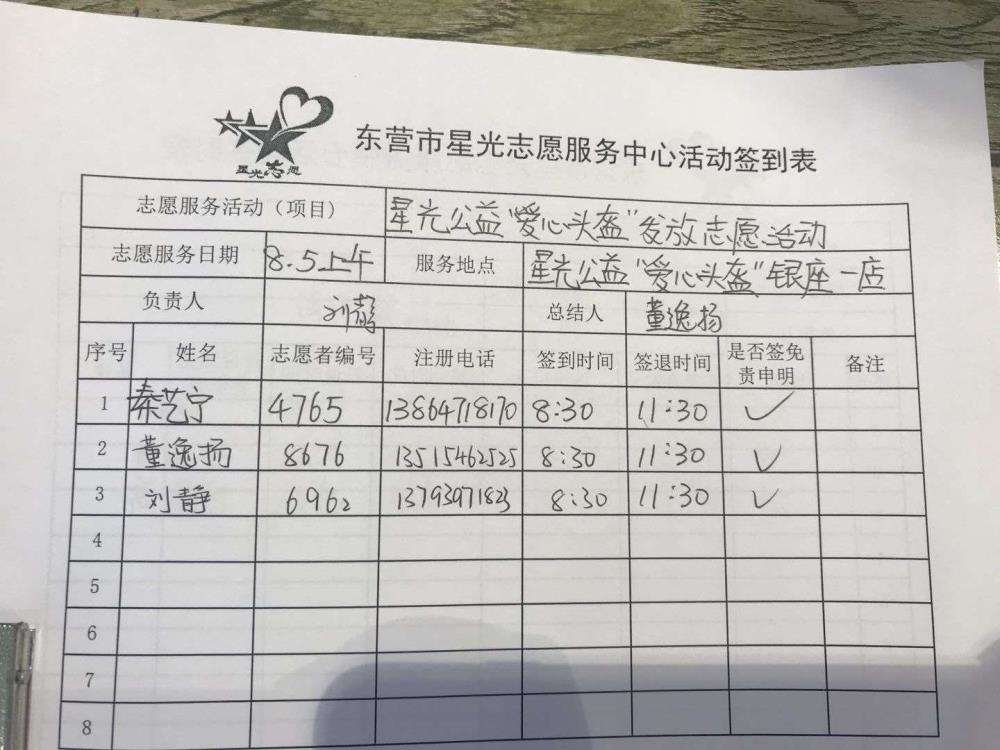 星光志愿
东营市星光志愿服务中心活动签到表
志愿服务活动（项目） 星光公益“爱心头盔”发放志愿活动
志愿服务日期 8.5上午 服务地点 星光公益“爱心头盔”银座一店
负责人 刘静 总结人 董逸扬
序号 姓名 志愿者编号 注册电话 签到时间 签退时间 是否签免责申明 备注
1 秦艺宁 4765 13864718170 8:30 11:30 ✓
2 董逸扬 8676 13515462525 8:30 11:30 ✓
3 刘静 6962 13793971823 8:30 11:30 ✓
4
5
6
7
8